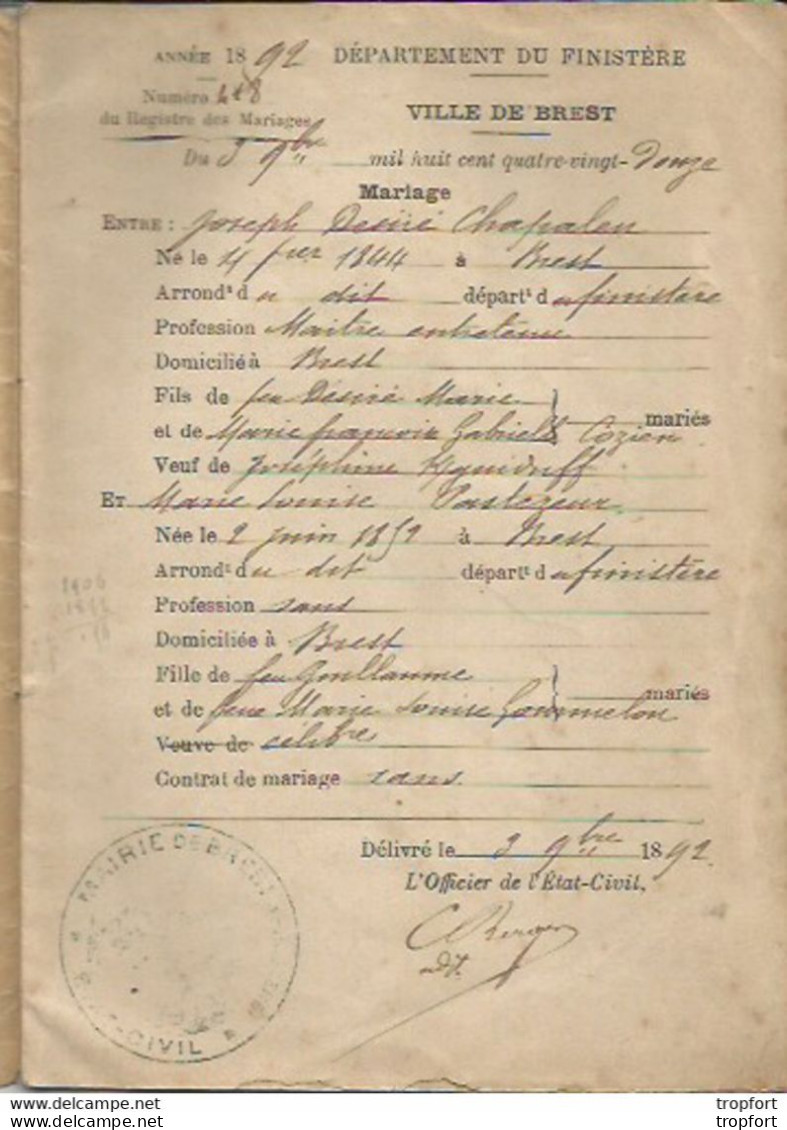 ANNÉE 1892 DÉPARTEMENT DU FINISTÈRE
Numéro 418
du Registre des Mariages
VILLE DE BREST
Du 3 9bre mil huit cent quatre-vingt-Douze
Mariage
ENTRE : Joseph Désiré Chapalen
Né le 4 fier 1844 à Brest
Arrondt du dit départt du finistère
Profession Maître entretenu
Domicilié à Brest
Fils de feu Désiré Marie
et de Marie françoise Gabrielle Cozien mariés
Veuf de Joséphine
ET Marie Louise
Née le 2 juin 1852 à Brest
Arrondt du dit départt du finistère
Profession sans
Domiciliée à Brest
Fille de feu Goullaume
et de feue Marie Louise Gourmelon mariés
Veuve de célibre
Contrat de mariage sans
Délivré le 3 9bre 1892
L'Officier de l'État-Civil,
adjt
MAIRIE DE BREST
ÉTAT-CIVIL
1906
18
delcampe.net
delcampe.net
tropfort
tropfort